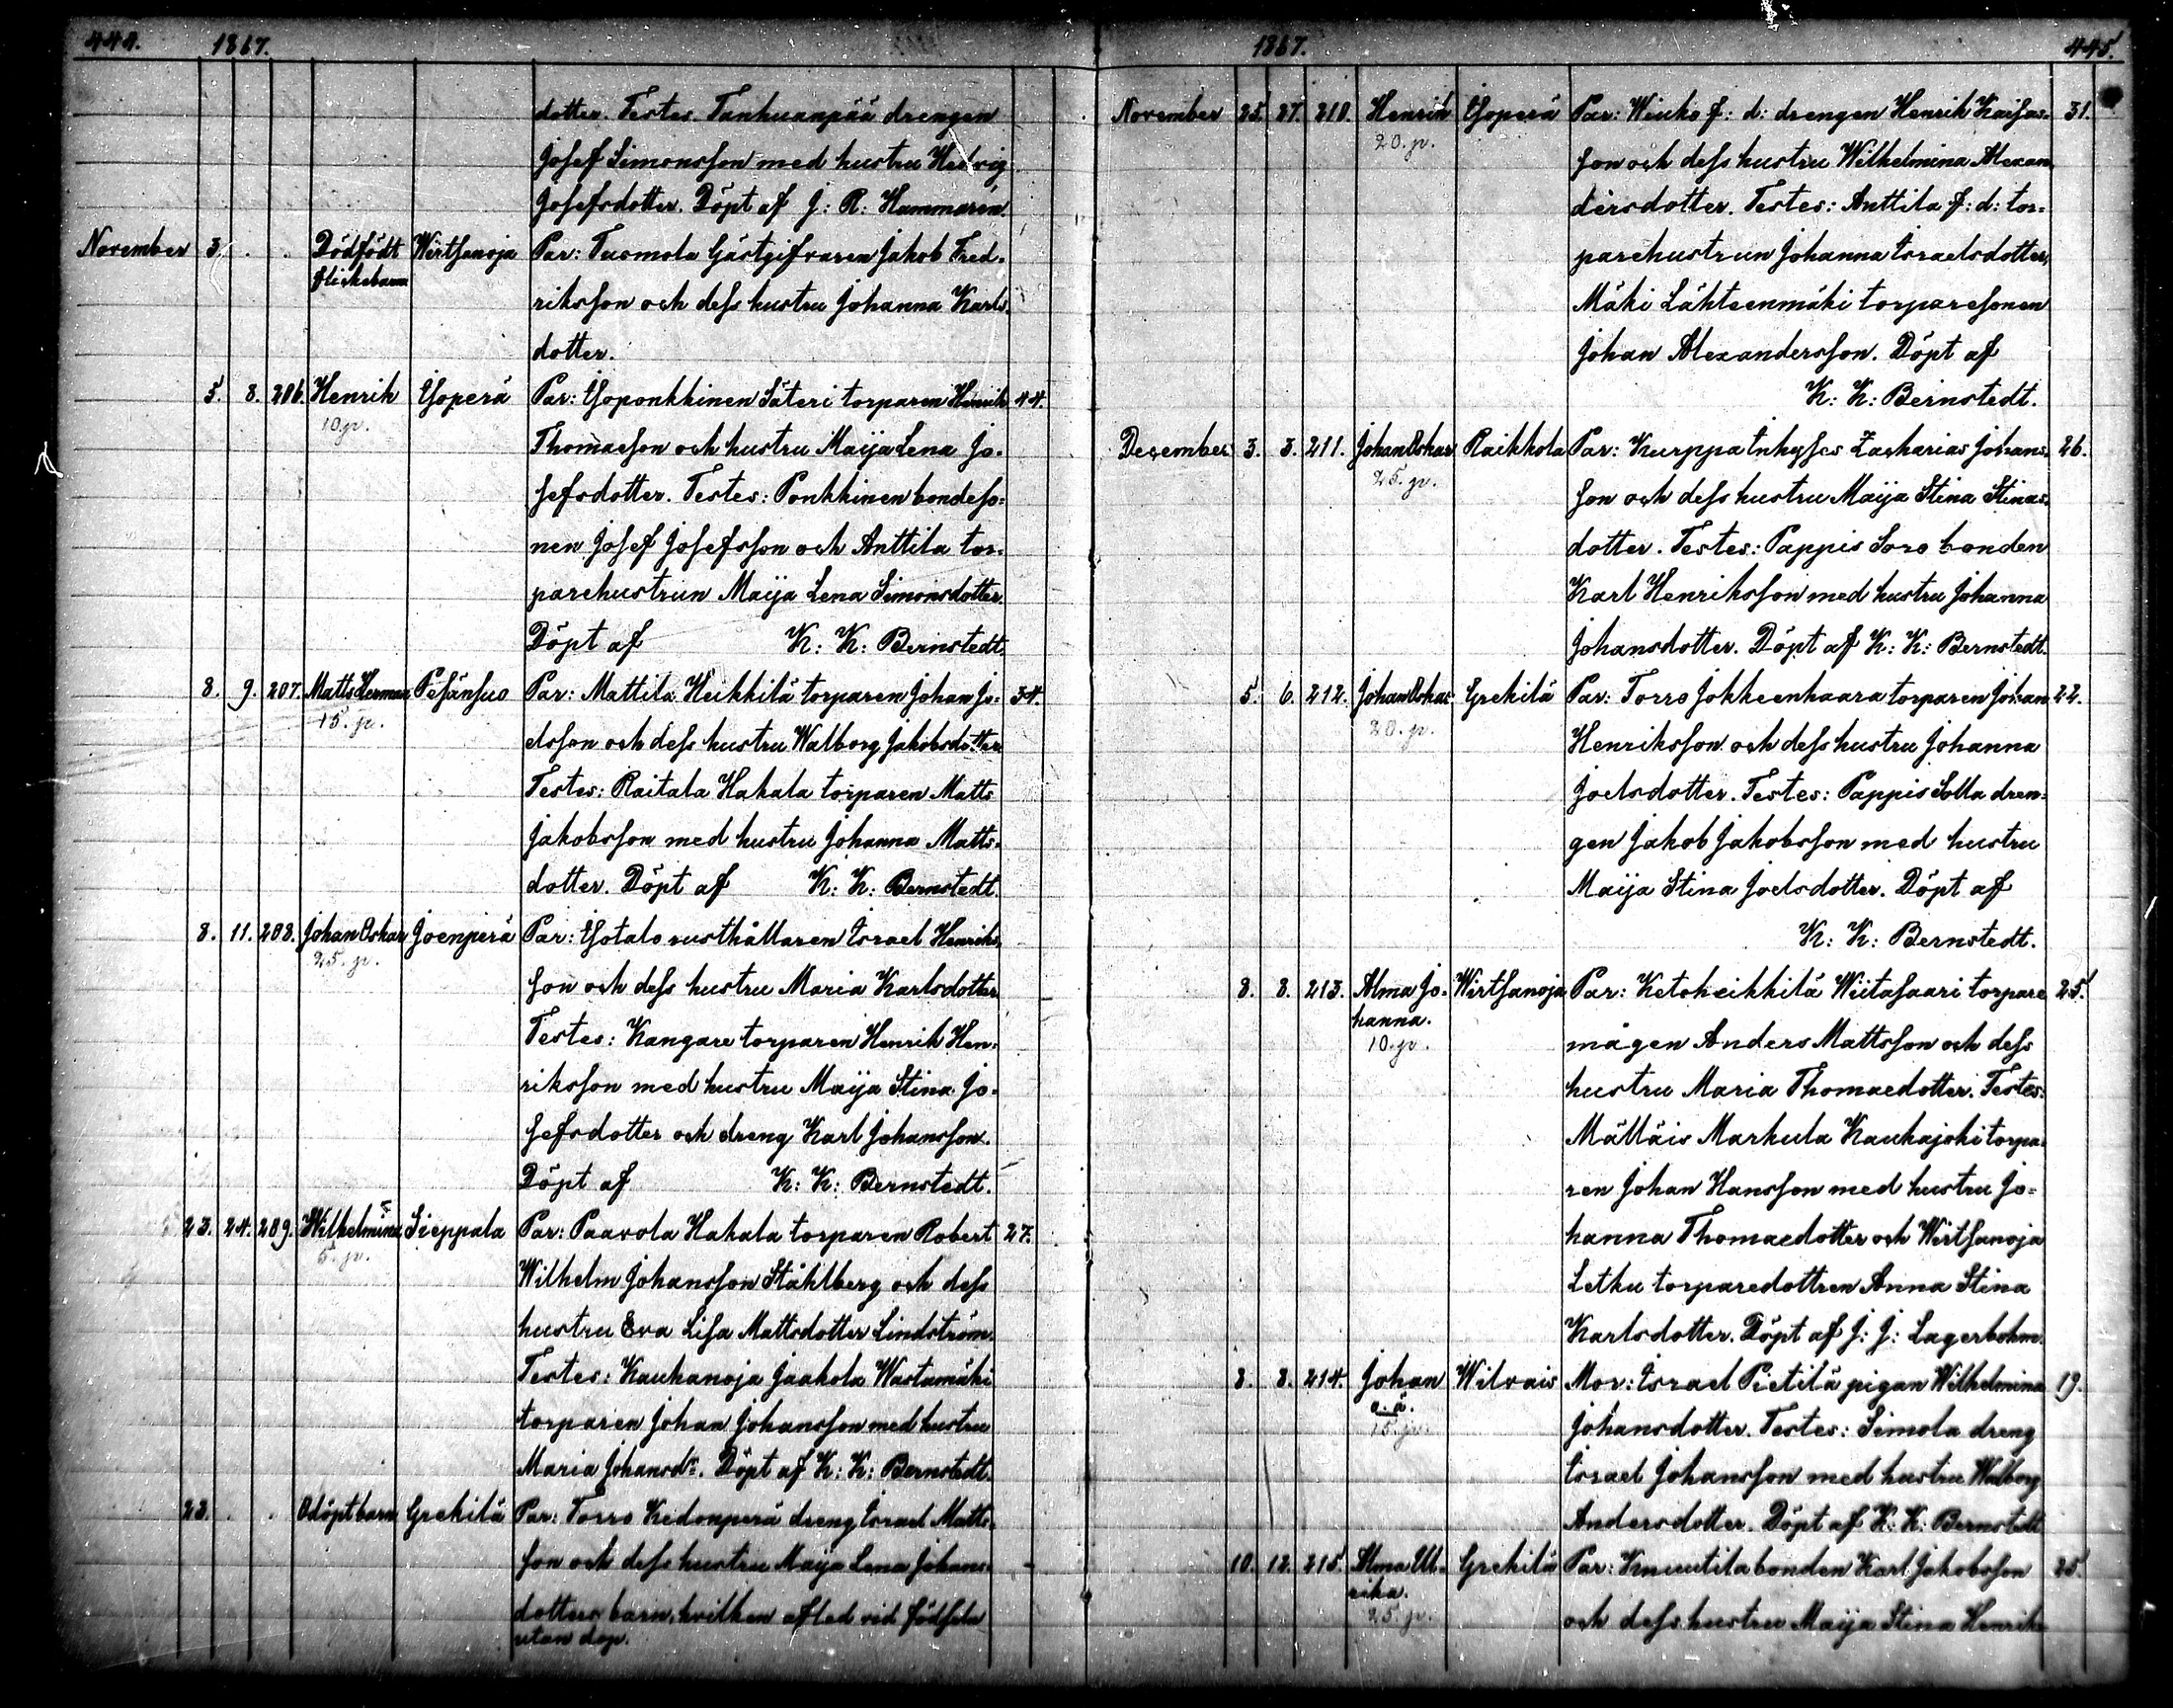 444. 1867.
dotter. Testes. Tanhuanpää drengen
Josef Simonsson med hustru Hedvig
Josefsdotter. Döpt af J: R: Hammarén.
November 3. . . Dödfödt Wirtsanoja Par: Tuomola Gästgifvaren Jakob Fred-
flickebarn riksson och dess hustru Johanna Karls-
dotter.
5. 8. 206. Henrik Yoperä Par: Yoponkkinen Säteri torparen Henrik 44.
10. p. Thomasson och hustru Maija Lena Jo-
sefsdotter. Testes: Ponkkinen bondeso-
nen Josef Josefsson och Anttila tor-
parehustrun Maija Lena Simonsdotter.
Döpt af K: K: Bernstedt.
8. 9. 207. Matts Herman Pesänsuo Par: Mattila Heikkilä torparen Johan Jo- 34.
15. p. elsson och dess hustru Walborg Jakobsdotter
Testes: Raitala Hakala torparen Matts
Jakobsson med hustru Johanna Matts-
dotter. Döpt af K: K: Bernstedt.
8. 11. 208. Johan Oskar Joenperä Par: Yotalo rusthållaren Israel Henriks-
25. p. son och dess hustru Maria Karlsdotter
Testes: Kangare torparen Henrik Hen-
riksson med hustru Maija Stina Jo-
sefsdotter och dreng Karl Johansson.
Döpt af K: K: Bernstedt.
23. 24. 209. Wilhelmina Sieppala Par: Paavola Hakala torparen Robert 27.
5. p. Wilhelm Johansson Ståhlberg och dess
hustru Eva Lisa Mattsdotter Lindström.
Testes: Kauhanoja Jaakola Wastamäki
torparen Johan Johansson med hustru
Maria Johansdr. Döpt af K: K: Bernstedt.
23. . . Odöpt barn Grekilä Par: Torro Kedonperä dreng Israel Matts-
son och dess hustru Maija Lena Johans- -
dotters barn, hvilken afled vid födseln
utan dop.
1867. 445.
November 25. 27. 210. Henrik Yoperä Par: Wiuko f: d: drengen Henrik Kaifas- 31.
20. p. son och dess hustru Wilhelmina Alexan-
dersdotter. Testes: Anttila f: d: tor-
parehustrun Johanna Israelsdotter,
Mäki Lähteenmäki torparesonen
Johan Alexandersson. Döpt af
K: K: Bernstedt.
December 3. 3. 211. Johan Oskar Raikkola Par: Kurppa Inhyses Zacharias Johans- 26.
25. p. son och dess hustru Maija Stina Stinas-
dotter. Testes: Pappis Soro bonden
Karl Henriksson med hustru Johanna
Johansdotter. Döpt af K: K: Bernstedt.
5. 6. 212. Johan Oskar Grekilä Par: Torro Jokkeenhaara torparen Johan 22.
20. p. Henriksson och dess hustru Johanna
Joelsdotter. Testes: Pappis Solla dren-
gen Jakob Jakobsson med hustru
Maija Stina Joelsdotter. Döpt af
K: K: Bernstedt.
8. 8. 213. Alma Jo- Wirtsanoja Par: Ketoheikkilä Wiitasaari torpare 25.
hanna. mågen Anders Mattsson och dess
10. p. hustru Maria Thomaedotter. Testes:
Mälläis Markula Kauhajoki torpa-
ren Johan Hansson med hustru Jo-
hanna Thomaedotter och Wirtsanoja
Letku torparedottren Anna Stina
Karlsdotter. Döpt af J: J: Lagerbohm.
8. 8. 214. Johan Wilvais Mor: Israel Pietilä pigan Wilhelmina 19.
o. ä. Johansdotter. Testes: Simola dreng
15. p. Israel Johansson med hustru Walborg
Andersdotter. Döpt af K: K: Bernstedt
10. 12. 215. Alma Ul- Grekilä Par: Knuutila bonden Karl Jakobsson 25.
rika. och dess hustru Maija Stina Henriks-
25. p.